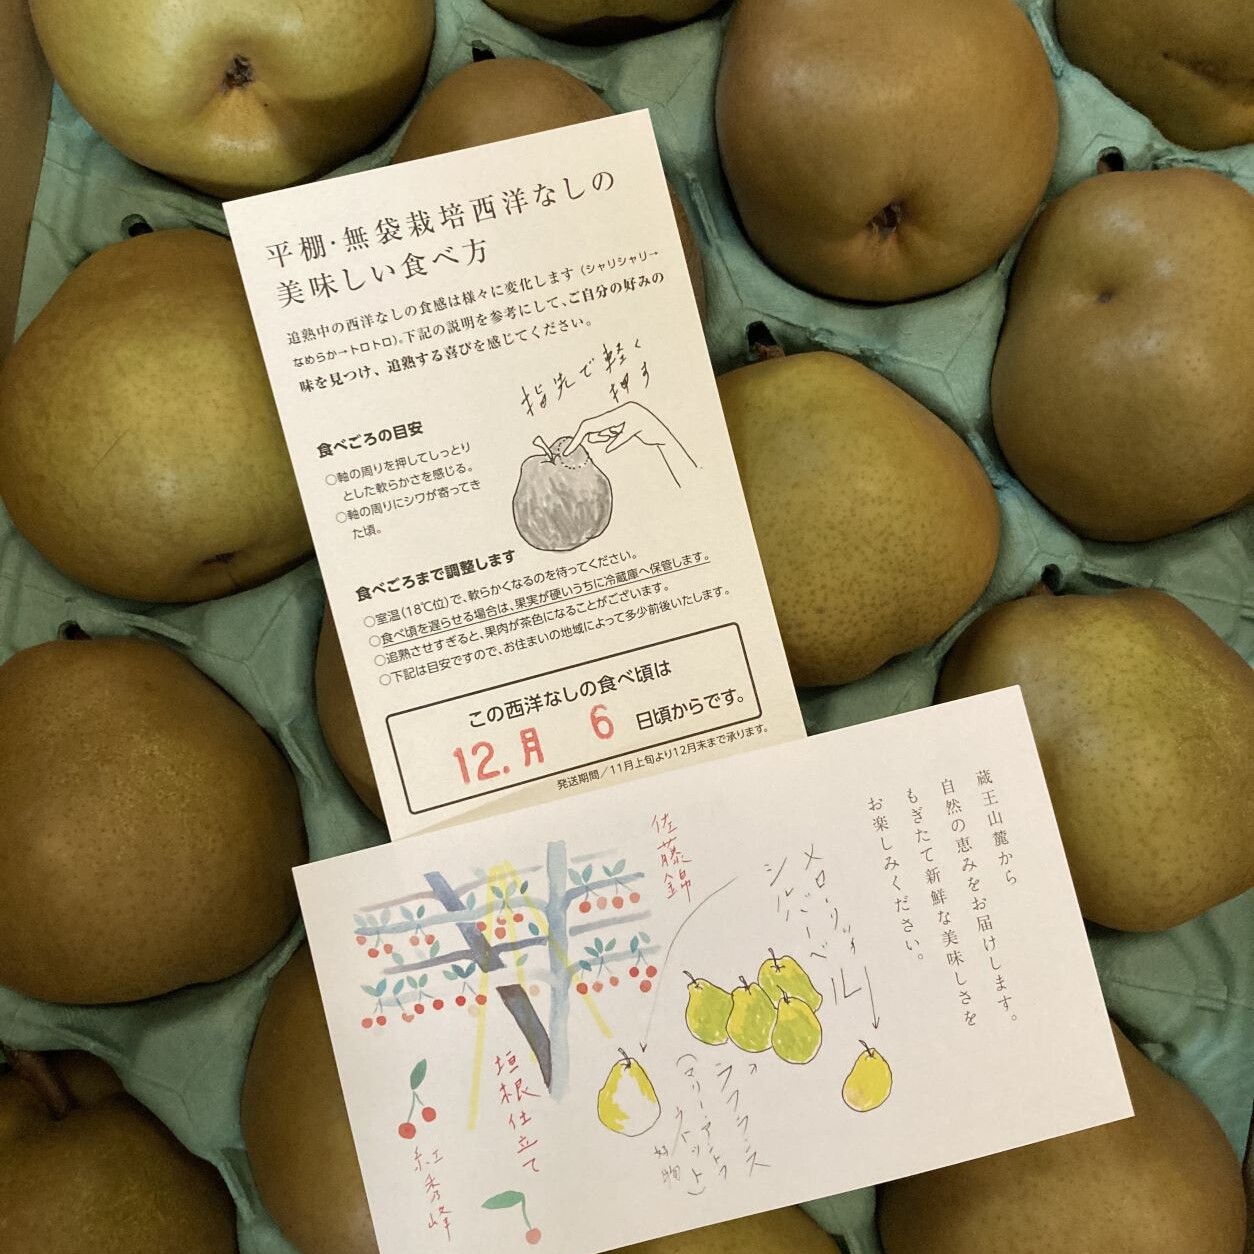 平棚・無袋栽培西洋なしの
美味しい食べ方
追熟中の西洋なしの食感は様々に変化します(シャリシャリ→
なめらか→トロトロ)。下記の説明を参考にして、ご自分の好みの
味を見つけ、追熟する喜びを感じてください。
指先で軽く
押す
食べごろの目安
○軸の周りを押してしっとり
とした軟らかさを感じる。
○軸の周りにシワが寄ってき
た頃。
食べごろまで調整します
○室温(18℃位)で、軟らかくなるのを待ってください。
○食べ頃を遅らせる場合は、果実が硬いうちに冷蔵庫へ保管します。
○追熟させすぎると、果肉が茶色になることがございます。
○下記は目安ですので、お住まいの地域によって多少前後いたします。
この西洋なしの食べ頃は
12.月 6 日頃からです。
発送期間/11月上旬より12月末まで承ります。
蔵王山麓から
自然の恵みをお届けします。
もぎたて新鮮な美味しさを
お楽しみください。
メローリッチ
シルバーベル
佐藤錦
ラフランス
(マリー・アントワ
ネット)
好物
垣根仕立て
紅秀峰